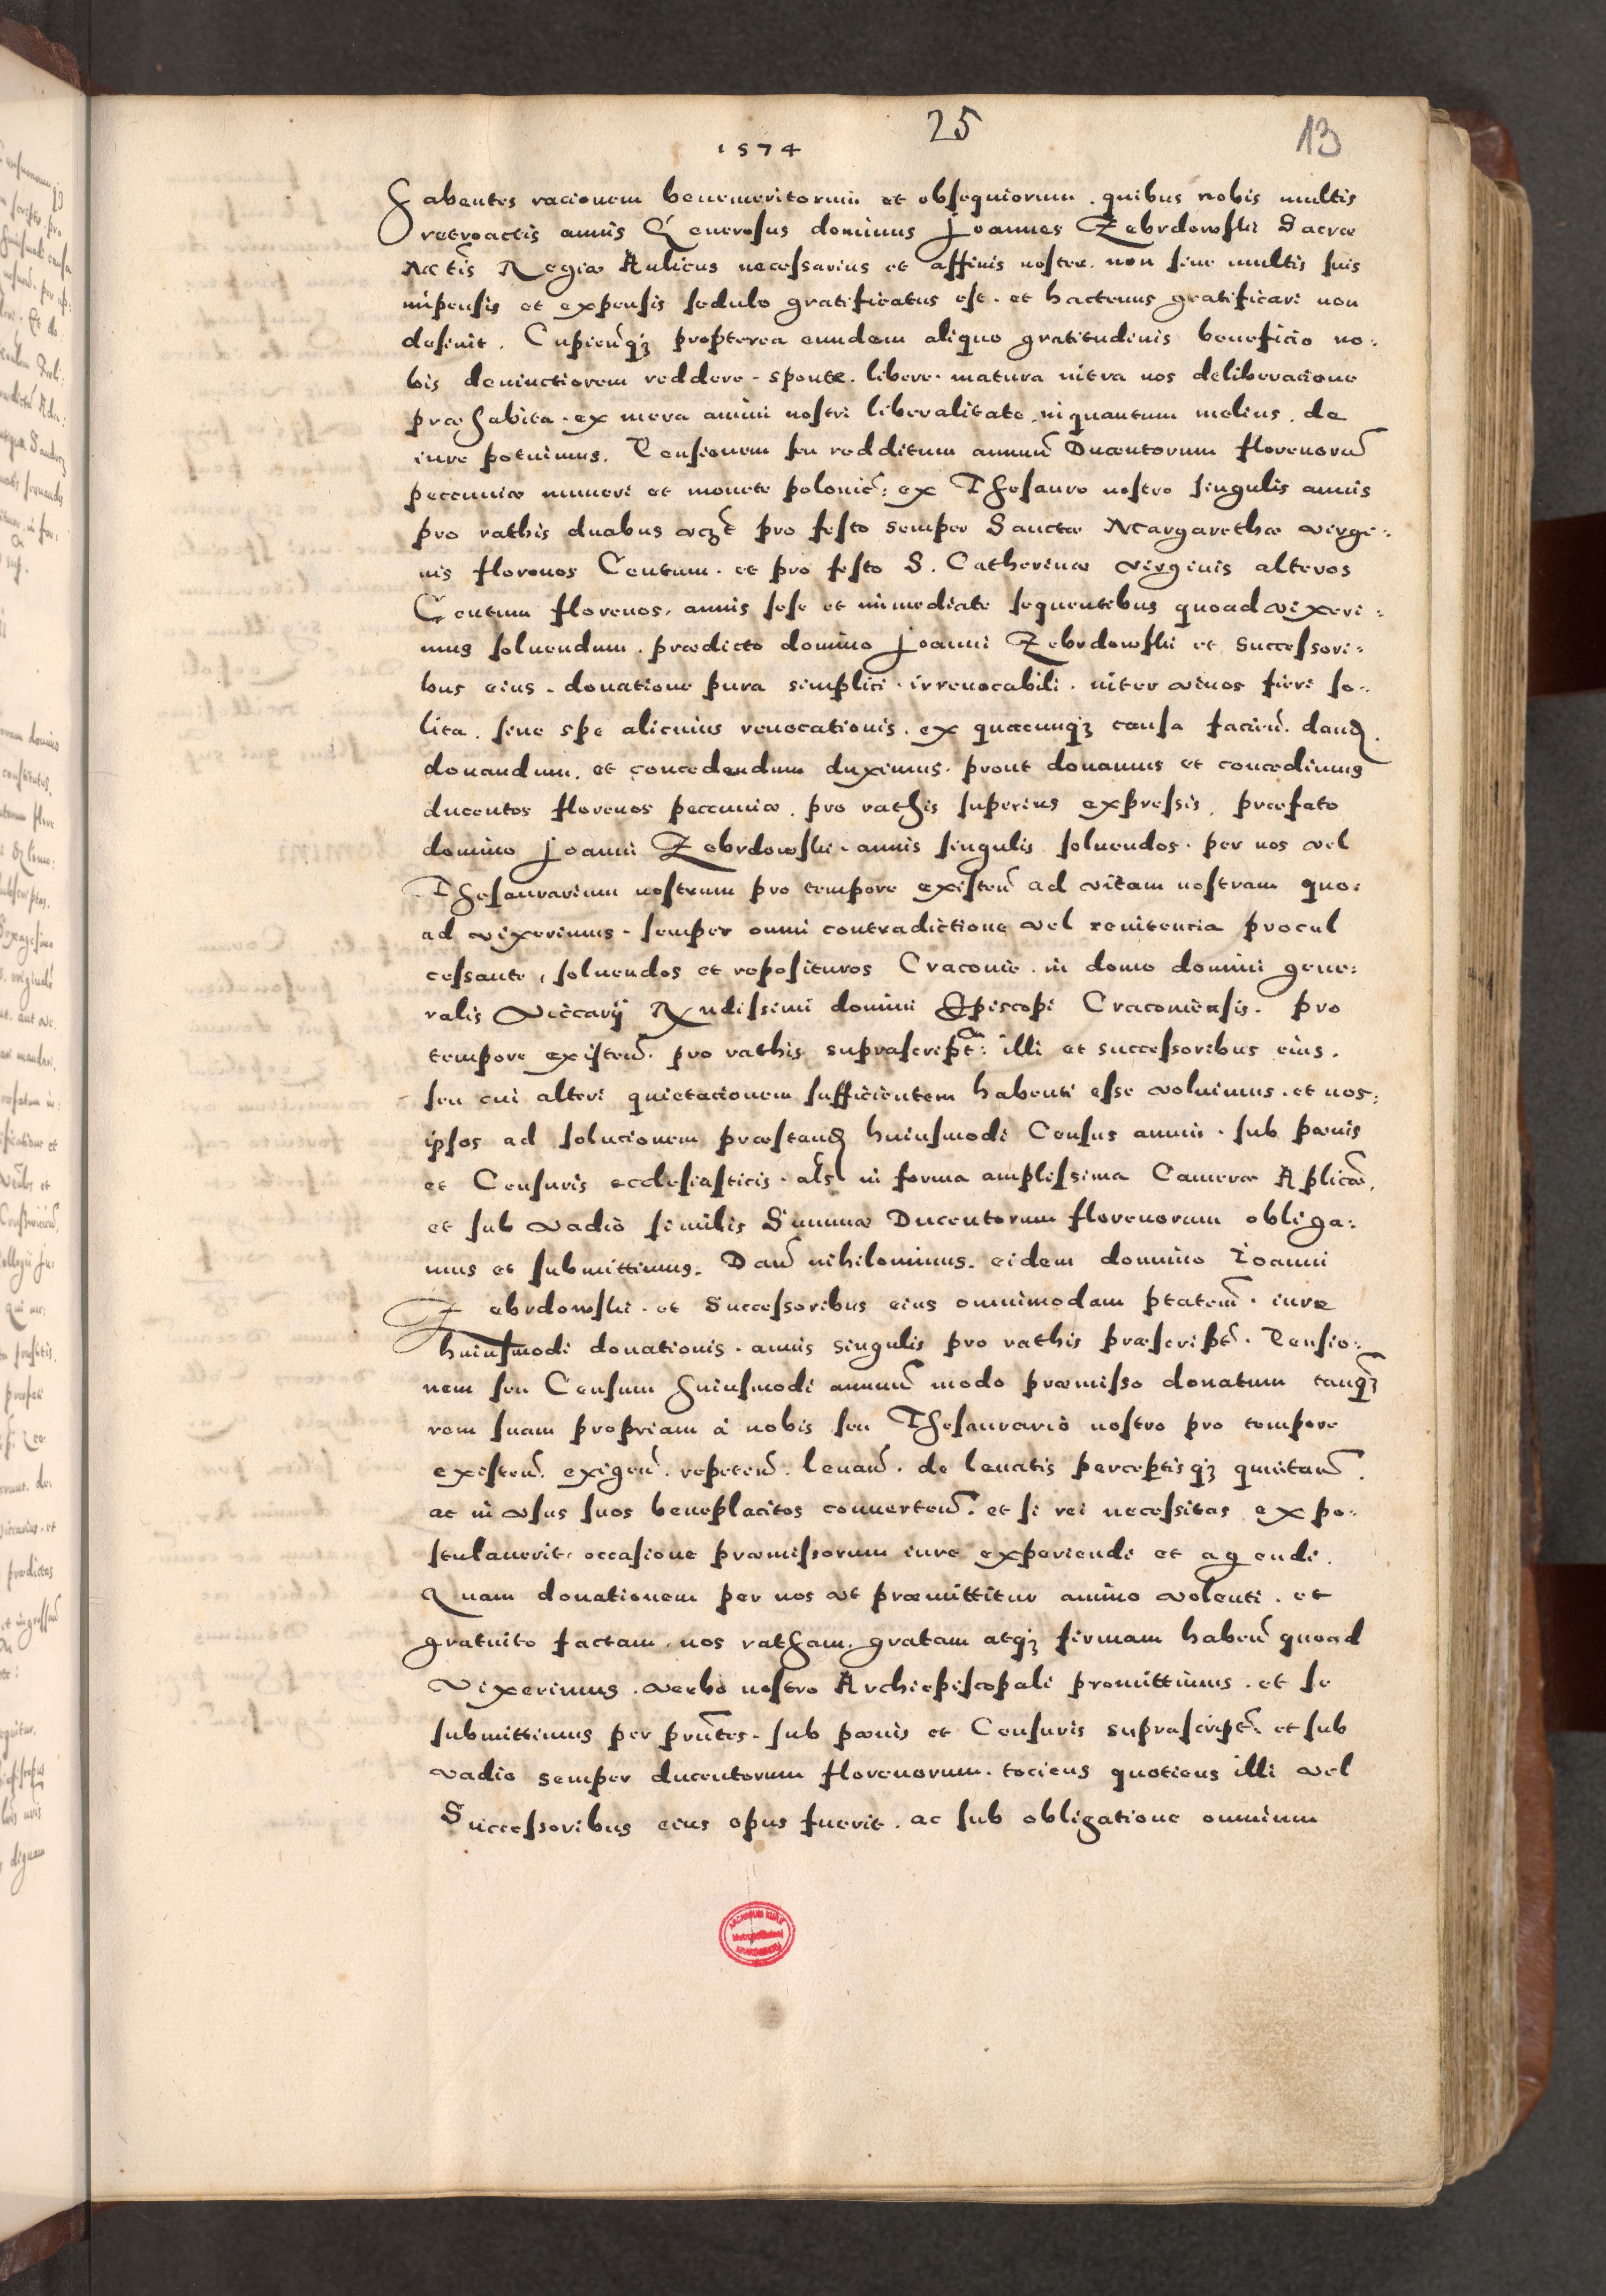 25
13
1574
Habentes racionem benemeritorum et obsequiorum . quibus nobis multis
retroactis annis Generosus dominus Joannes Zebrdowski Sacræ
Mttis Regiæ Aulicus necessarius et affinis noster . non sine multis suis
impensis et expensis sedulo gratificatus est . et hactenus gratificari non
desinit . Cupientesqꝫ propterea eundem aliquo gratitudinis beneficio no:
bis deuinctiorem reddere . sponte . libere . matura intra nos deliberacione
præhabita . ex mera animi nostri liberalitate inquantum melius . de
iure potuimus . Pensionem seu redditum annuū Ducentorum florenorū
peccuniæ numeri et monete polonic: ex Thesauro nostro singulis annis
pro rathis duabus vczt pro festo semper Sanctæ Margarethæ virgi:
nis florenos Centum . et pro festo S. Catherinæ virginis alteros
Centum florenos . annis sese et immediate sequentibus quoad vixeri:
mus soluendum . prædicto domino Joanni Zebrdowski et Successori:
bus eius . donatione pura simplici . irreuocabili . inter viuos fieri so:
lita . sine spe alicuius reuocationis . ex quacunqꝫ causa facien̄ . dand .
donandum . et concedendum duximus . prout donamus et concedimus
ducentos florenos peccuniæ . pro rathis superius expressis . præfato
domino Joanni Zebrdowski . annis singulis soluendos . per nos vel
Thesaurarium nostrum pro tempore existen̄ ad vitam nostram quo:
ad vixerimus . semper omni contradictione vel renitencia procul
cessante , soluendos et reposituros Cracouie . in domo domini gene:
ralis Viccarij Rndissimi domini Episcopi Cracouiensis . pro
tempore existen̄ . pro rathis suprascript: illi et successoribus eius .
seu cui alteri quietacionem sufficientem habenti esse voluimus . et nos:
ipsos ad solucionem præstand huiusmodi Census annui . sub pœnis
et Censuris ecclesiasticis . als in forma amplissima Cameræ Aplicæ .
et sub vadio similis Summæ Ducentorum florenorum obliga:
mus et submittimus . Dan̄ nihilominus . eidem domino Ioanni
Zebrdowski . et Successoribus eius omnimodam ptatem . iure
huiusmodi donationis . annis singulis pro rathis præscript . Pensio:
nem seu Censum huiusmodi annuū modo præmisso donatum tanqꝫ
rem suam propriam à nobis seu Thesaurario nostro pro tempore
existen̄ . exigen̄ . repeten̄ . leuan̄ . de leuatis perceptisqꝫ quietan̄ .
ac in vsus suos beneplacitos conuerten̄ . et si rei necessitas expo:
stulauerit . occasione præmissorum iure experiendi et agendi .
Quam donationem per nos vt præmittitur animo volenti . et
gratuito factam . nos ratham . gratam atqꝫ firmam haben̄ quoad
Vixerimus . verbo nostro Archiepiscopali promittimus . et se
submittimus per prntes . sub pœnis et Censuris suprascript . et sub
vadio semper ducentorum florenorum . tociens quotiens illi vel
Successoribus eius opus fuerit . ac sub obligatione omnium